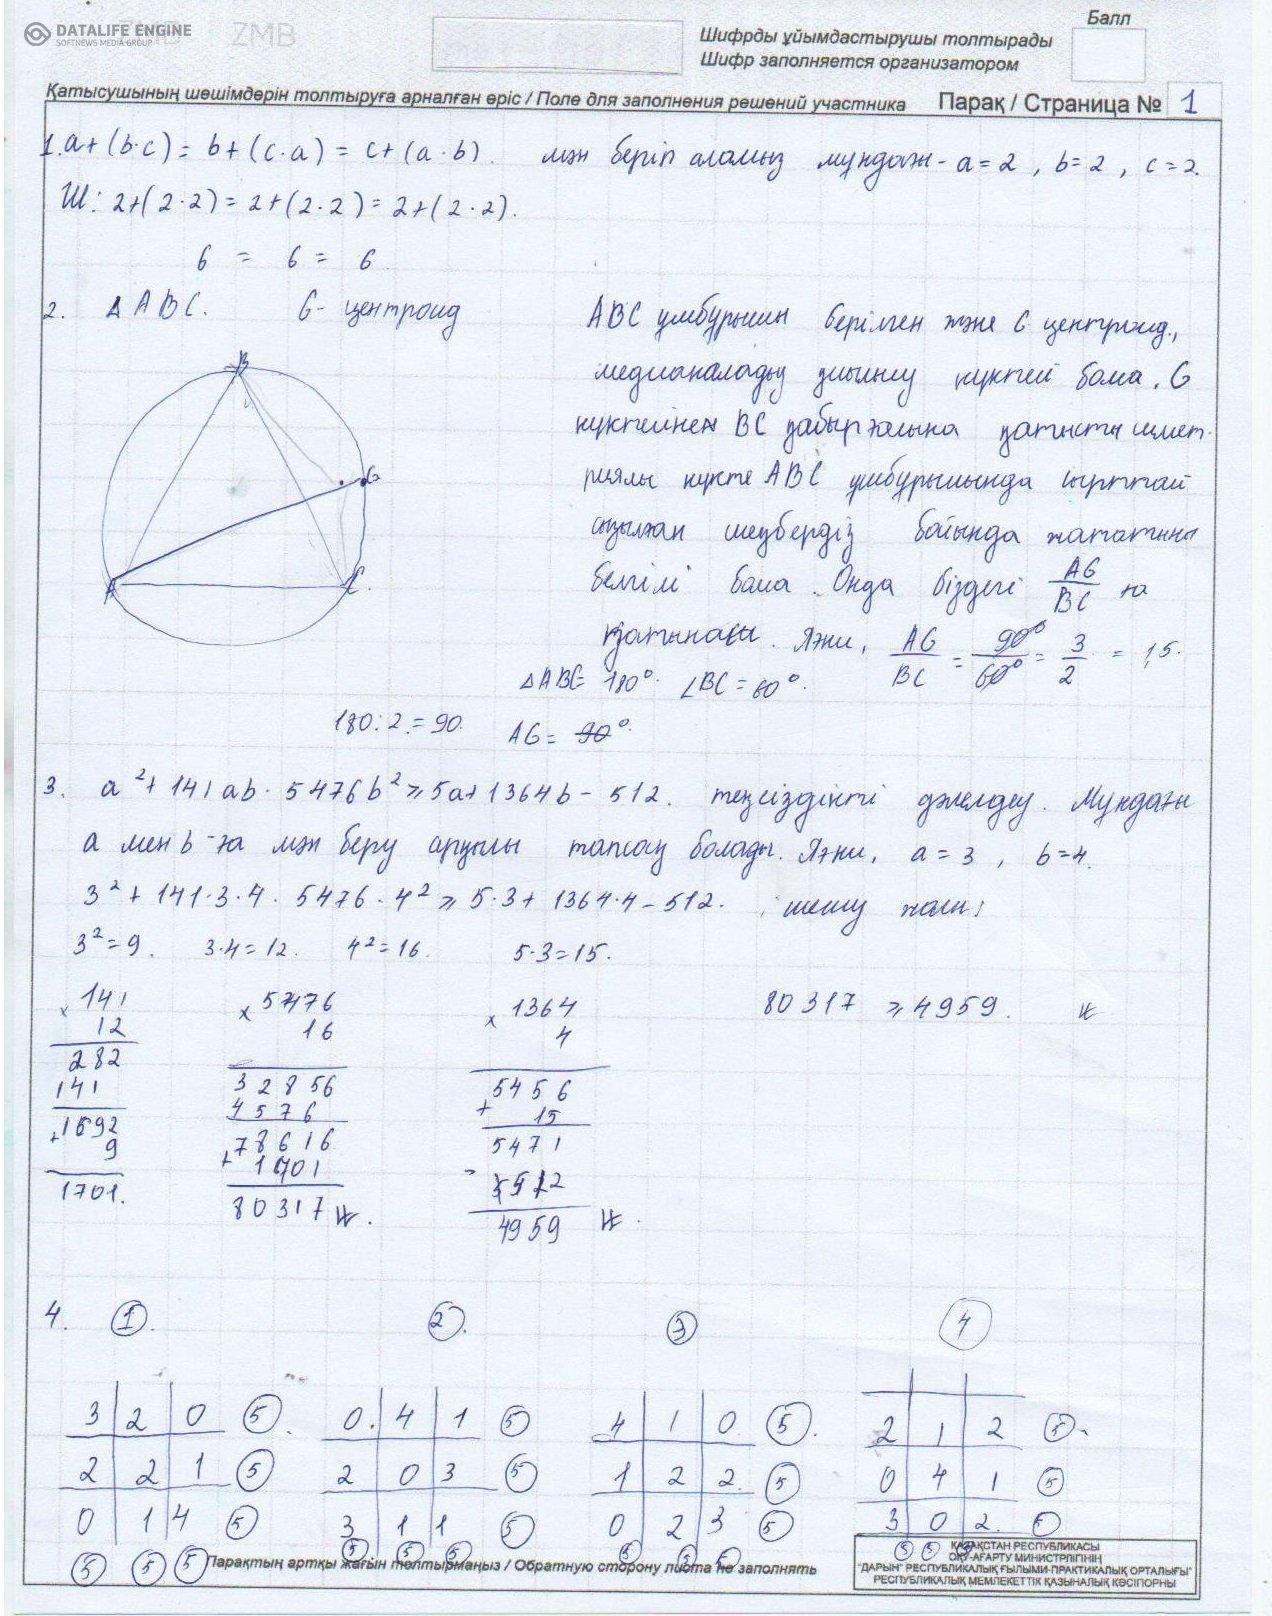 DATALIFE ENGINE
SOFTNEWS MEDIA GROUP
ZMB
Балл
Шифрды ұйымдастырушы толтырады
Шифр заполняется организатором
Қатысушының шешімдерін толтыруға арналған өріс / Поле для заполнения решений участника
Парақ / Страница № 1
1. a+(b·c) = b+(c·a) = c+(a·b). мән беріп аламыз мұндағы - a=2, b=2, c=2.
Ш: 2+(2·2) = 2+(2·2) = 2+(2·2).
6 = 6 = 6
2. Δ ABC. G - центроид
ABC үшбұрышын берілген және G центроид,
медианаладың қиылысу нүктесі болса. G
нүктесінен BC қабырғасына қатысты симет-
риялы нүкте ABC үшбұрышында сырттай
сызылған шеңбердің бойында жататыны
белгілі болса. Онда біздегі AG/BC ға
қатынасы. Яғни, AG/BC = 90°/60° = 3/2 = 1,5.
B
G
A
C
ΔABC = 180°. ∠BC = 60°.
180:2 = 90. AG = 90°.
3. a²+141ab·5476b² ⩾ 5a+1364b - 512. теңсіздікті дәлелдеу. Мұндағы
a мен b-ға мән беру арқылы тапсақ болады. Яғни, a=3, b=4.
3²+141·3·4·5476·4² ⩾ 5·3+1364·4-512. шешу жолы:
3²=9. 3·4=12. 4²=16. 5·3=15.
×141 ×5476 ×1364 80317 ⩾ 4959.
12 16 4
282 32856 5456
141 4576 +15
+1692 +78616 5471
9 1701 -512
1701. 80317 4959
4. 1. 2. 3 4
3 2 0 5. 0. 4 1 5 4 1 0 5. 2 1 2 5.
2 2 1 5 2 0 3 5 1 2 2. 5 0 4 1 5
0 1 4 5 3 1 1 5 0 2 3 5 3 0 2. 5
5 5 5 5 5 5 5 5 5 5 5 5
Парақтың артқы жағын толтырмаңыз / Обратную сторону листа не заполнять
ҚАЗАҚСТАН РЕСПУБЛИКАСЫ
ОҚУ-АҒАРТУ МИНИСТРЛІГІНІҢ
"ДАРЫН" РЕСПУБЛИКАЛЫҚ ҒЫЛЫМИ-ПРАКТИКАЛЫҚ ОРТАЛЫҒЫ"
РЕСПУБЛИКАЛЫҚ МЕМЛЕКЕТТІК ҚАЗЫНАЛЫҚ КӘСІПОРНЫ